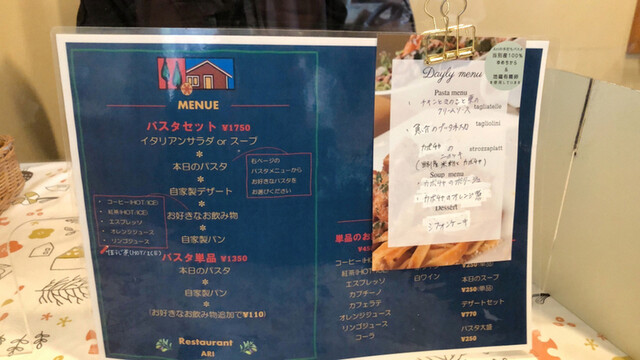 MENUE
パスタセット ¥1750
イタリアンサラダ or スープ
✻
本日のパスタ
✻
自家製デザート
✻
お好きなお飲み物
✻
自家製パン
右ページの
パスタメニューから
お好きなパスタを
お選びください
・コーヒー(HOT・ICE)
・紅茶(HOT・ICE)
・エスプレッソ
・オレンジジュース
・リンゴジュース
パスタ単品 ¥1350
本日のパスタ
✻
自家製パン
(お好きなお飲み物追加で¥110)
Restaurant
ARI
単品のお
コーヒー(HOT・ICE)
紅茶(HOT・ICE)
エスプレッソ
カプチーノ
カフェラテ
オレンジジュース
リンゴジュース
コーラ
白ワイン
¥250(単品)
本日のスープ
¥250(単品)
デザートセット
¥770
パスタ大盛
¥250
Dayly menu
Pasta menu
・チキンときのこと栗の
クリームソース tagliatelle
tagliolini
カボチャの
ニョッキ strozzapiatt
Soup menu
・カボチャのポタージュ
Dessert
シフォンケーキ